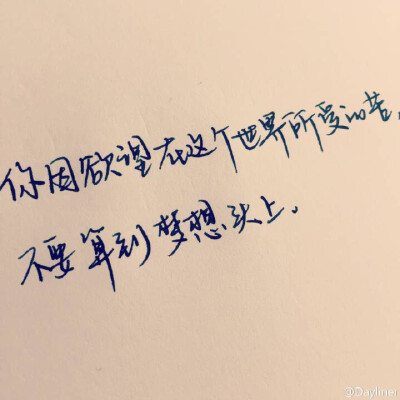 你因欲望在这个世界所受的苦,
不要算到梦想头上。
@Dayliner